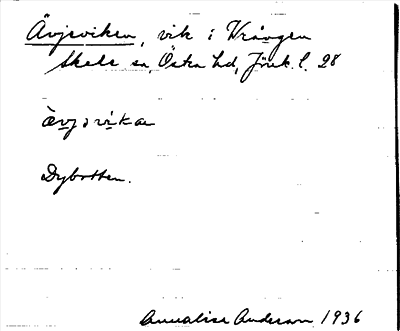 Ävjesviken, vik i Vrången
Skede sn, Östra hd, Jönk. l. 28
ävjəvikan
Dybotten.
Annalisa Anderson 1936